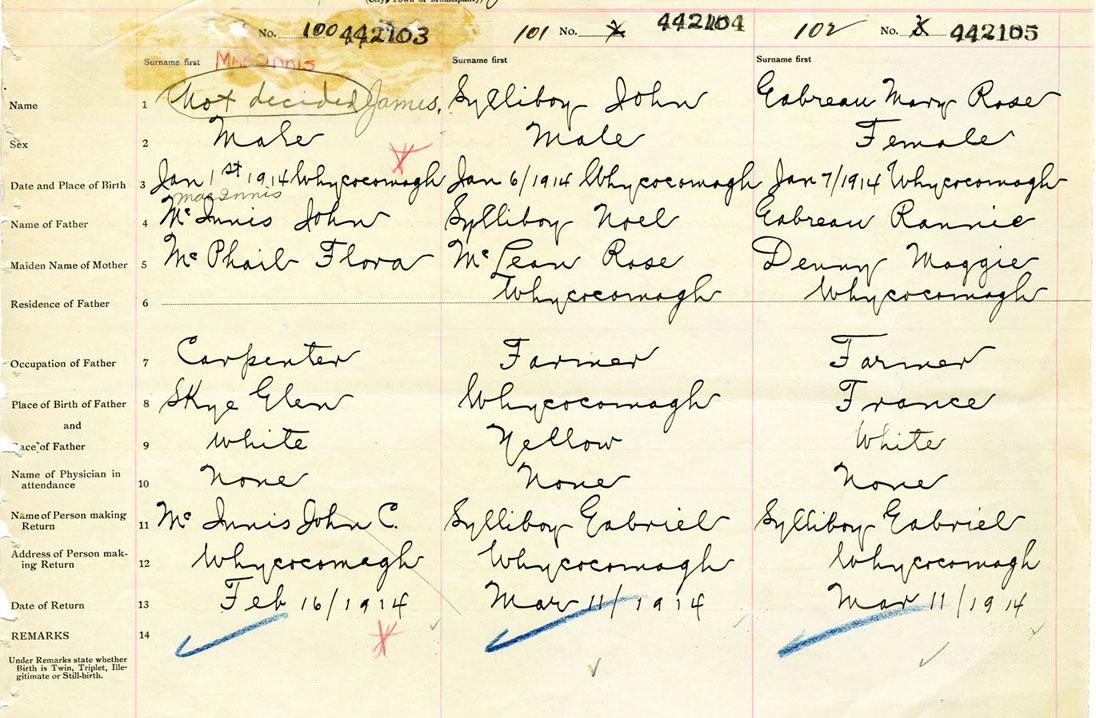 (City, Town or Municipality)
No. 100 442103 101 No. 442104 102 No. 3 442105
Surname first MacInnis Surname first Surname first
Name 1 Not decided James, Sylliboy John Gabreau Mary Rose
Sex 2 Male Male Female
Date and Place of Birth 3 Jan 1st 1914 Whycocomagh Jan 6/1914 Whycocomagh Jan 7/1914 Whycocomagh
MacInnis
Name of Father 4 Mc Innis John Sylliboy Noel Gabreau Rannie
Maiden Name of Mother 5 Mc Phail Flora Mc Lean Rose Denny Maggie
Residence of Father 6 Whycocomagh Whycocomagh
Occupation of Father 7 Carpenter Farmer Farmer
Place of Birth of Father 8 Skye Glen Whycocomagh France
and
ace of Father 9 White Yellow White
Name of Physician in
attendance 10 None None None
Name of Person making
Return 11 Mc Innis John C. Sylliboy Gabriel Sylliboy Gabriel
Address of Person mak-
ing Return 12 Whycocomagh Whycocomagh Whycocomagh
Date of Return 13 Feb 16/1914 Mar 11/1914 Mar 11/1914
REMARKS 14
Under Remarks state whether
Birth is Twin, Triplet, Ille-
gitimate or Still-birth.